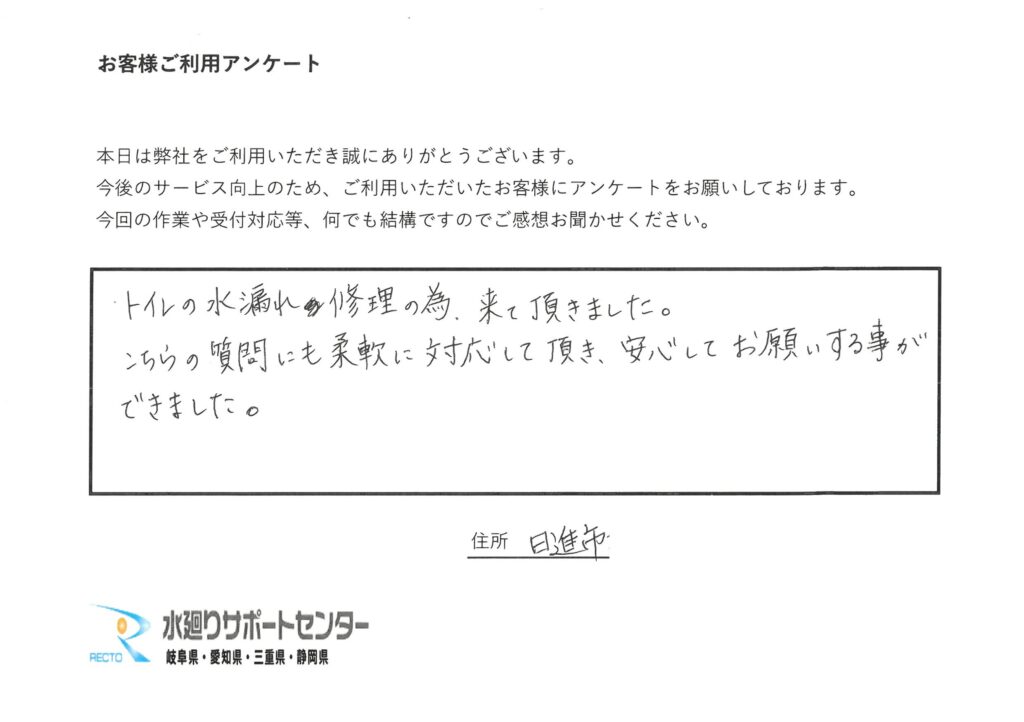 お客様ご利用アンケート
本日は弊社をご利用いただき誠にありがとうございます。
今後のサービス向上のため、ご利用いただいたお客様にアンケートをお願いしております。
今回の作業や受付対応等、何でも結構ですのでご感想お聞かせください。
トイレの水漏れ修理の為、来て頂きました。
こちらの質問にも柔軟に対応して頂き、安心してお願いする事が
できました。
住所 日進市
水廻りサポートセンター
RECTO 岐阜県・愛知県・三重県・静岡県